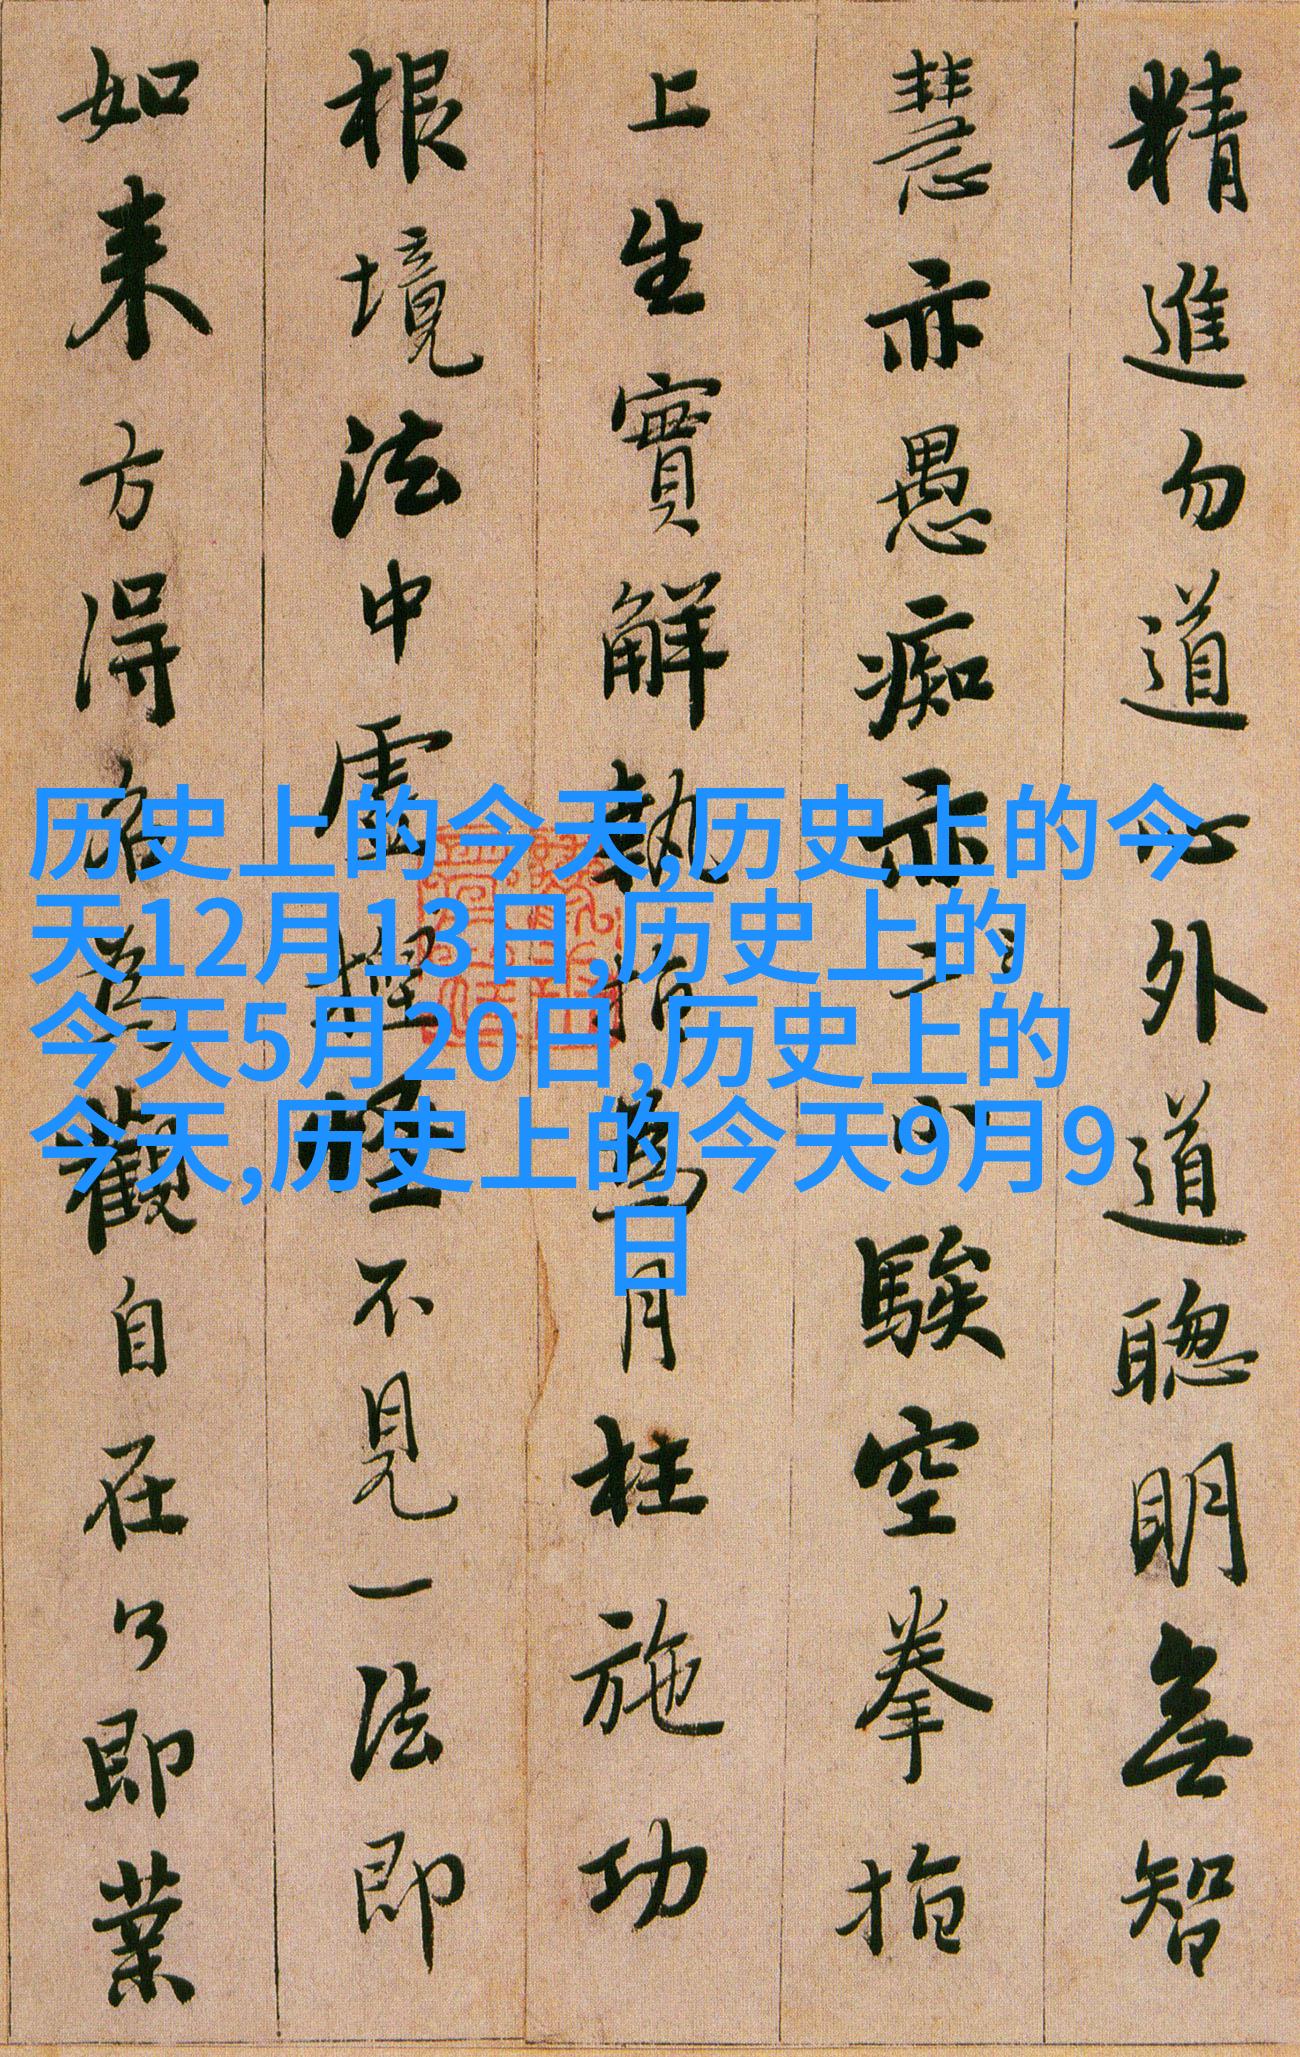 精進勿道心外道聰明無智
慧亦愚痴亦小騃空拳指
上生實解執指為月枉施功
根境法中虛捏怪不見一法即
如来方得名為觀自在了即業
历史上的今天,历史上的今
天12月13日,历史上的
今天5月20日,历史上的
今天,历史上的今天9月9
日